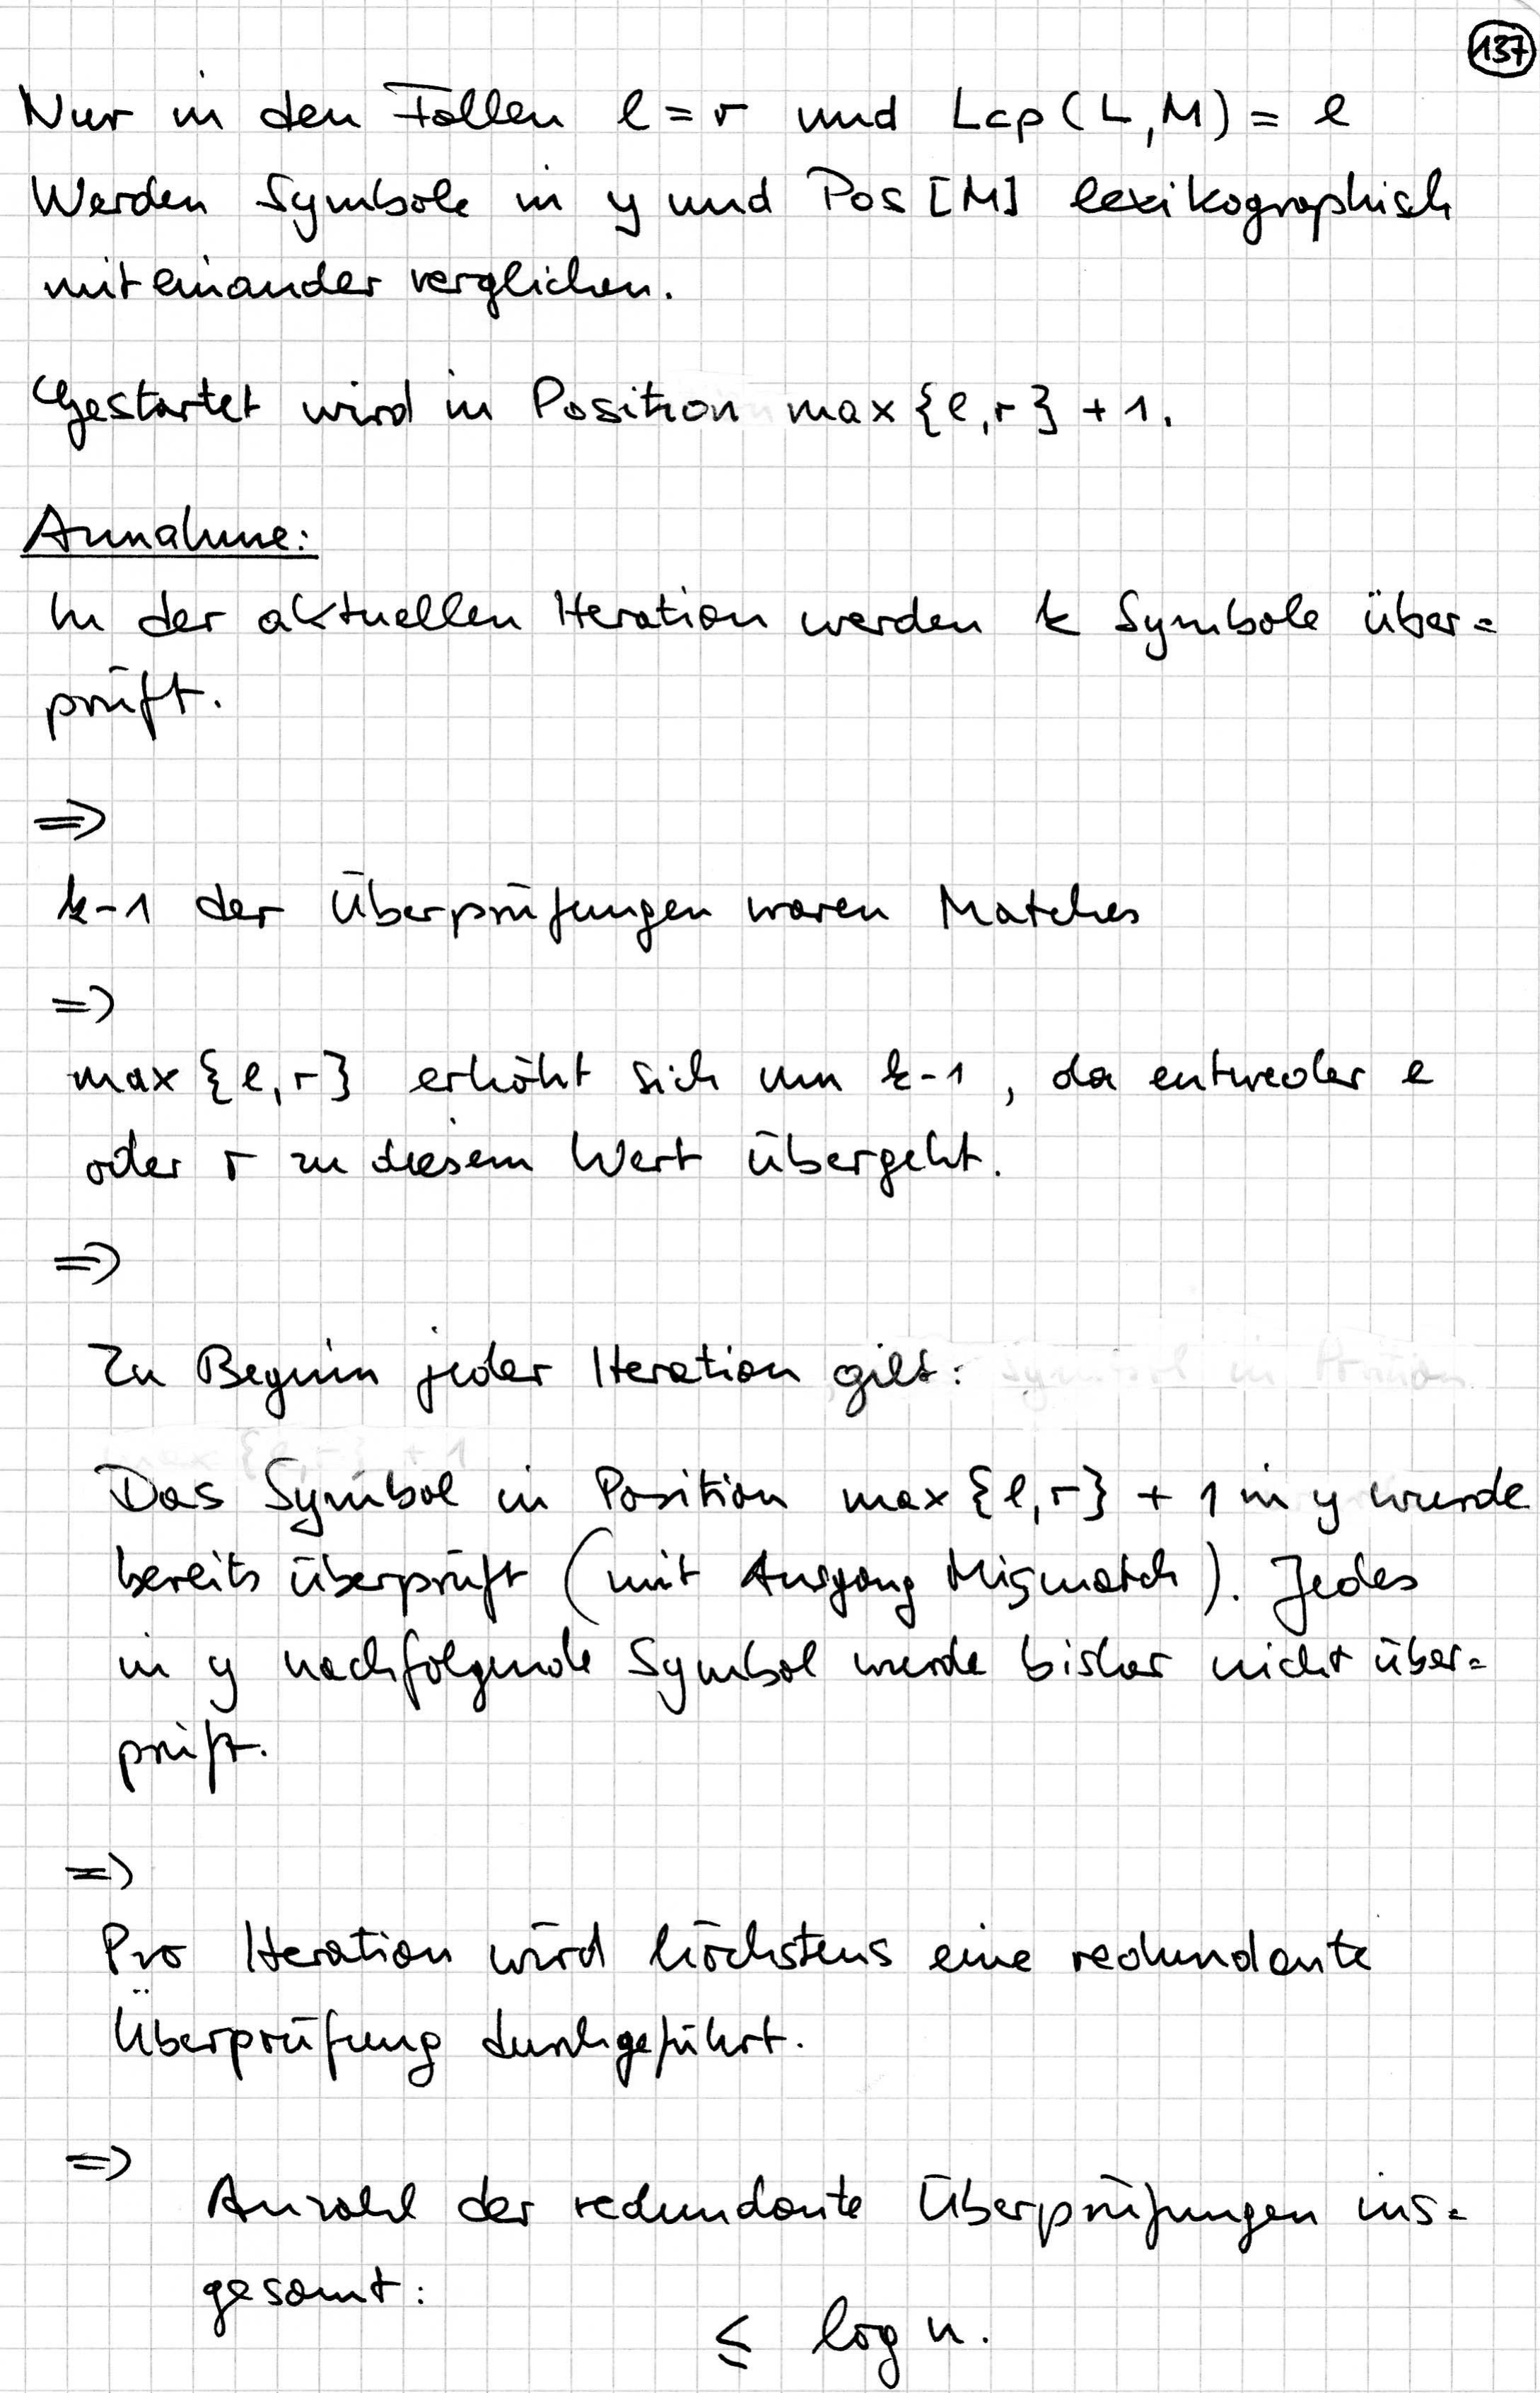 137
Nur in den Fällen l = r und Lcp(L,M) = l
Werden Symbole in y und Pos[M] lexikographisch
miteinander verglichen.
Gestartet wird in Position max{l,r} + 1.
Annahme:
In der aktuellen Iteration werden k Symbole über=
prüft.
⇒
k-1 der Überprüfungen waren Matches
⇒
max{l,r} erhöht sich um k-1, da entweder l
oder r zu diesem Wert übergeht.
⇒
Zu Beginn jeder Iteration gilt:
Das Symbol in Position max{l,r} + 1 in y wurde
bereits überprüft (mit Ausgang Mismatch). Jedes
in y nachfolgende Symbol wurde bisher nicht über=
prüft.
⇒
Pro Iteration wird höchstens eine redundante
Überprüfung durchgeführt.
⇒
Anzahl der redundante Überprüfungen ins=
gesamt:
≤ log n.